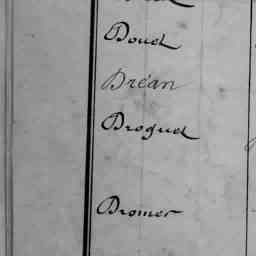 Doucet
Dréan
Droguet
Dromer